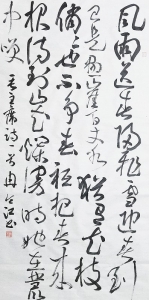 風雨送春歸飛雪迎春到
已是懸崖百丈冰猶有花枝
俏俏也不爭春祇把春來
報待到山花爛漫時她在叢
中咲 毛主席詩一首